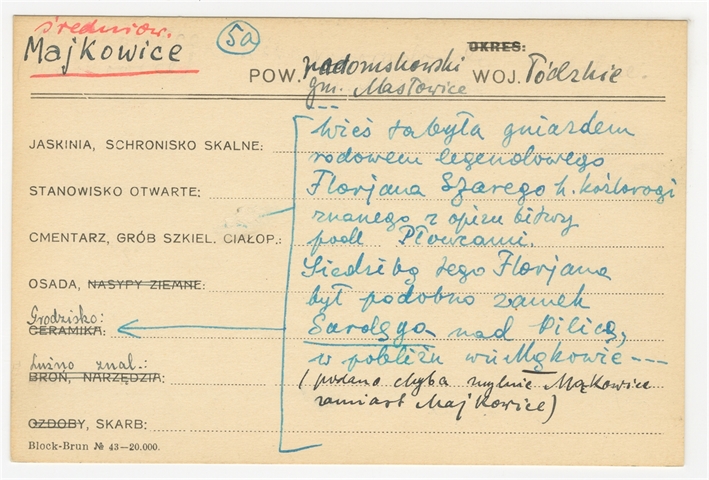 średniow.
Majkowice
5a
OKRES:
POW. radomskowski WOJ. Łódzkie
gm. Masłowice
JASKINIA, SCHRONISKO SKALNE:
STANOWISKO OTWARTE:
CMENTARZ, GRÓB SZKIEL. CIAŁOP.:
OSADA, NASYPY ZIEMNE:
Grodzisko:
CERAMIKA:
Luźno znal.:
BROŃ, NARZĘDZIA:
OZDOBY, SKARB:
Block-Brun № 43—20.000.
Wieś ta była gniazdem
rodowem legendowego
Florjana Szarego h. koźlorogi
znanego z opisu bitwy
pod Płowcami.
Siedzibą tego Florjana
był podobno zamek
Sarlęga nad Pilicą,
w pobliżu wsi Mąkowic ---
(podano chyba mylnie Mąkowice
zamiast Majkowice)